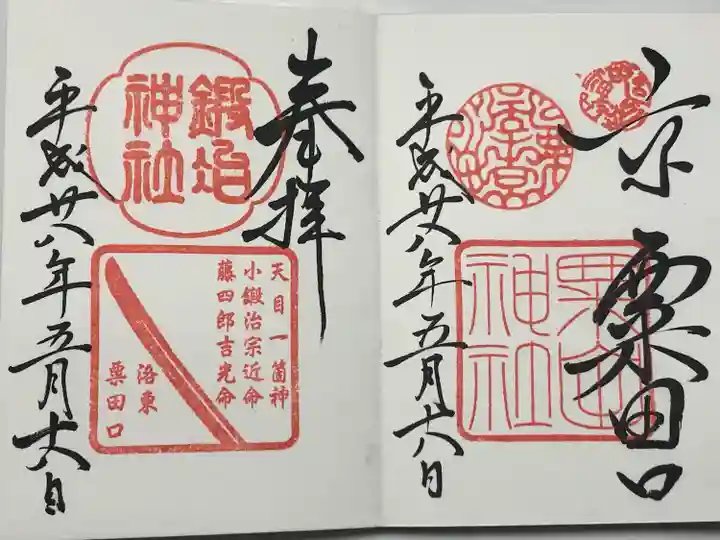 京 粟田口
粟田神社
平成廿八年五月十八日
奉拝
鍛冶神社
天目一箇神
小鍛治宗近命
藤四郎吉光命
洛東
粟田口
平成廿八年五月十八日